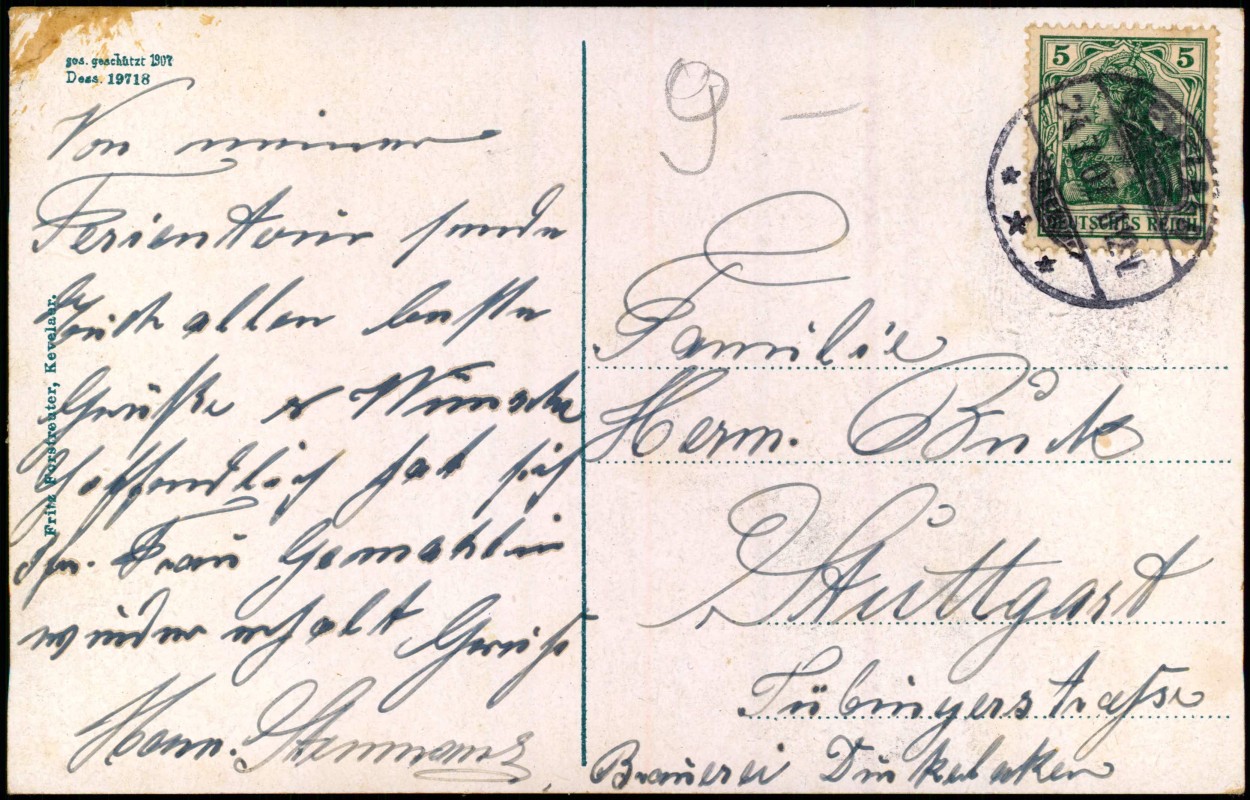 ges. geschützt 1907
Dess. 19718
Von meiner
Ferientour sende
Euch allen beste
Grüße & Wünsche
Hoffendlich hat sich
Ihr. Frau Gemahlin
wieder erholt Gruß
Herm.
Fritz Forstreuter, Kevelaer.
9 –
5 5
DEUTSCHES REICH
Familie
Herm. Buck
Stuttgart
Tübingerstraße
Brauerei Dinkelaken